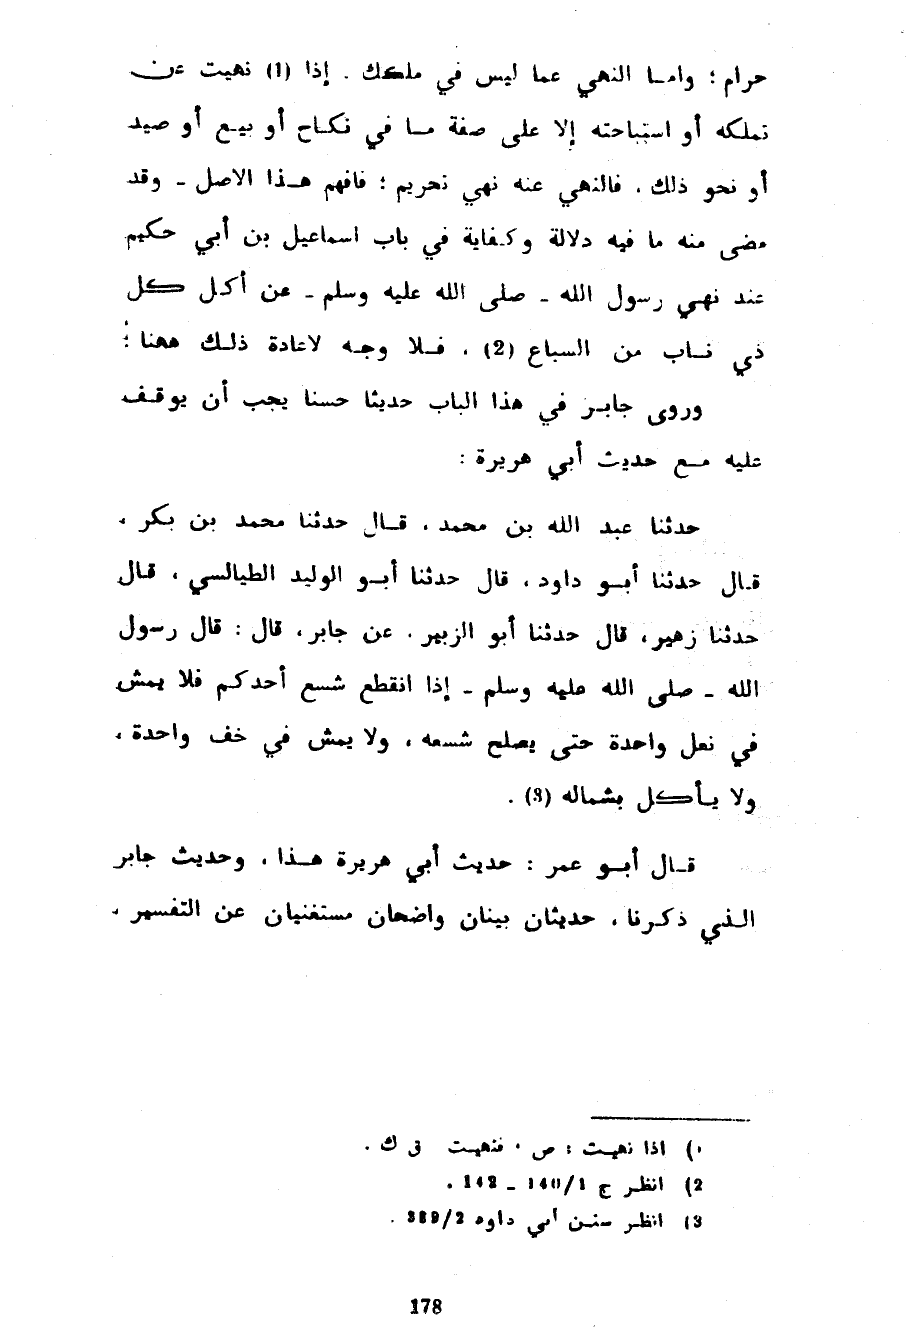 حرام ؛ وامـا النهي عما ليس في ملكك . إذا (1) نهيت عن
تملكه أو استباحته إلا على صفة مـا في نكـاح أو بيـع أو صيد
أو نحو ذلك ، فالنهي عنه نهي تحريم ؛ فافهم هـذا الاصل ـ وقد
مضى منه ما فيه دلالة وكفاية في باب اسماعيل بن أبي حكيم
عند نهي رسول الله ـ صلى الله عليه وسلم ـ عن أكـل كل
ذي نـاب من السباع (2) ، فـلا وجـه لاعادة ذلـك ههنا ؛
وروى جابـر في هذا الباب حديثا حسنا يجب أن يوقـف
عليه مـع حديث أبي هريرة :
حدثنا عبد الله بن محمد ، قـال حدثنا محمد بن بكر ،
قـال حدثنا أبـو داود ، قال حدثنا أبـو الوليد الطيالسي ، قـال
حدثنا زهير ، قال حدثنا أبو الزبير . عن جابر ، قال : قال رسول
الله ـ صلى الله عليه وسلم ـ إذا انقطع شسع أحدكم فلا يمش
في نعل واحدة حتى يصلح شسعه ، ولا يمش في خف واحدة ،
ولا يـأكل بشماله (3) .
قـال أبـو عمر : حديث أبي هريرة هـذا ، وحديث جابر
الـذي ذكـرنا ، حديثان بينان واضحان مستغنيان عن التفسير ،
1) اذا نهيت : ص ، فنهيت ق ك .
2) انظر ج 140/1 ـ 142 .
3) انظر سنن أبي داود 389/2 .
178